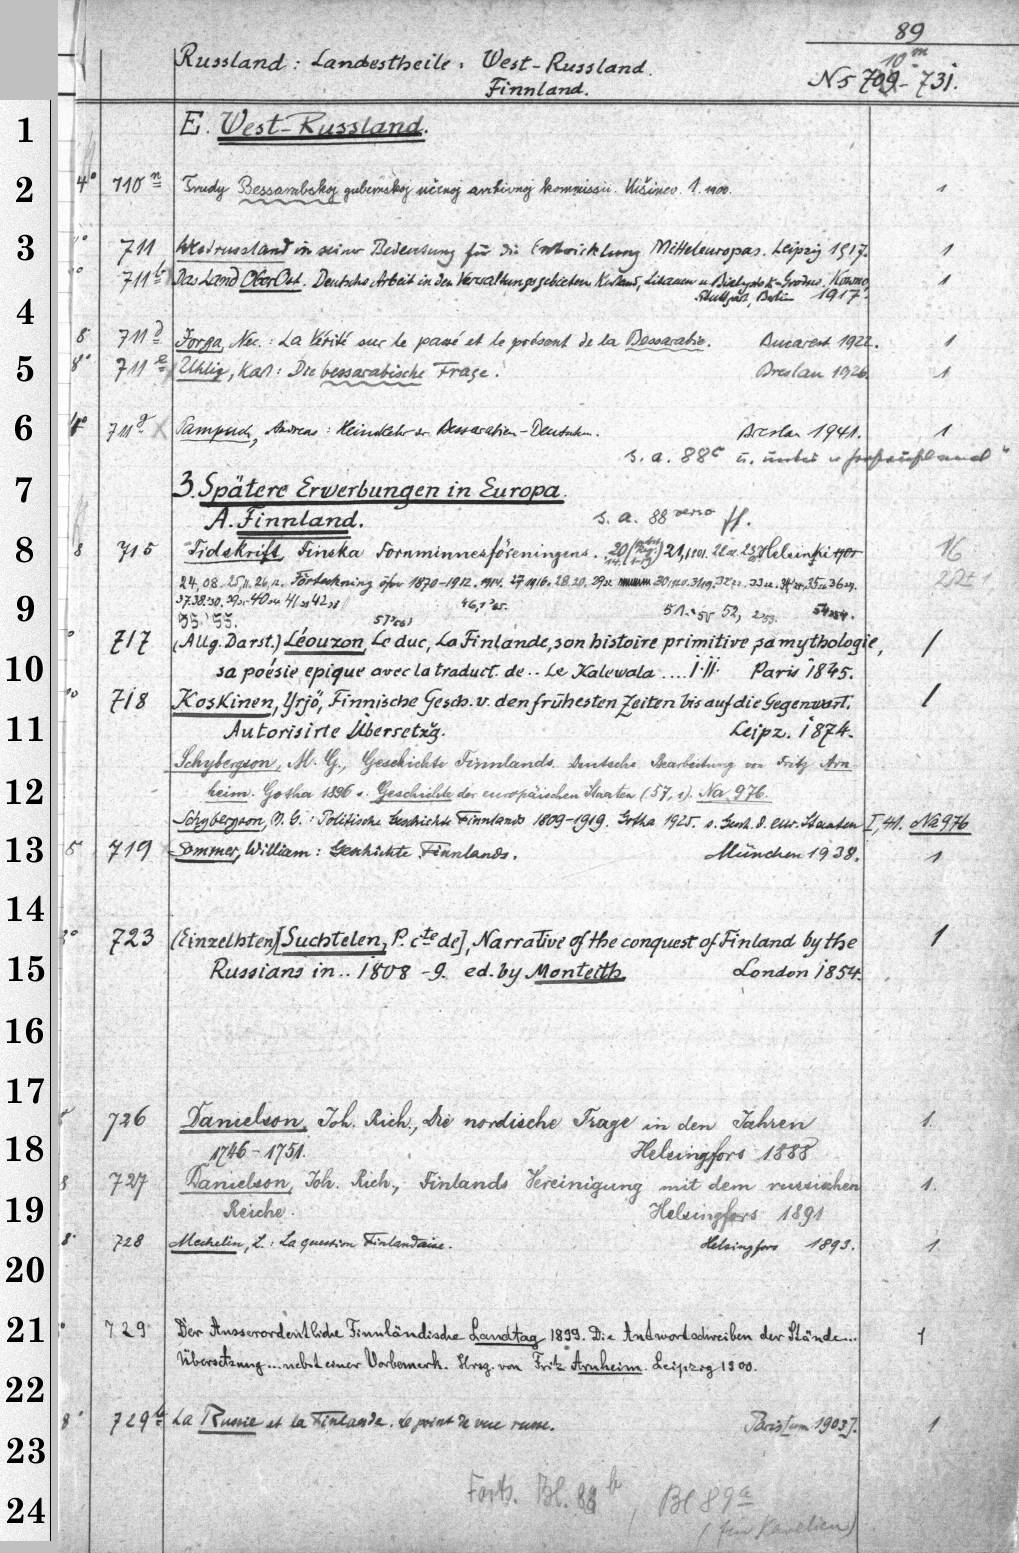 89
Russland: Landestheile: West-Russland.
Finnland.
10 m
No 709-731.
1
E. West-Russland.
2
4° 710 n Trudy Bessarabskoj gubernskoj učenoj archivnoj kommissii. Kišinev. 1. 1900. 1
3
711 Westrussland in seiner Bedeutung für die Entwicklung Mitteleuropas. Leipzig 1917. 1
711 b Das Land OberOst. Deutsche Arbeit in den Verwaltungsgebieten Kurland, Litauen u. Bialystok-Grodno. Kowno, 1
Stuttgart, Berlin 1917.
4
8 711 d Jorga, Nec.: La Vérité sur le passé et le présent de la Bessarabie. Bucarest 1922. 1
5
8° 711 e Uhlig, Karl: Die bessarabische Frage. Breslau 1926. 1
6
4° 711 g Pampuch, Andreas: Heimkehr der Bessarabien-Deutschen. Breslau 1941. 1
s. a. 88 c u. unter "
7
3. Spätere Erwerbungen in Europa.
A. Finnland. s. a. 88 verso ff.
8
8 715 Tidskrift, Finska Fornminnesföreningens. 20 21, 1901. 22 Helsinki 16
24, 08. 25, 11. 26, 12. Förteckning öfver 1870-1912. 27 1916. 28. 29.
9
37. 38. 39 40 41 42 46, 1 51. 52,
717 (Allg. Darst.) Léouzon Le duc, La Finlande, son histoire primitive, sa mythologie, 1
10
sa poésie epique avec la traduct. de .. Le Kalewala .... I.II. Paris 1845.
718 Koskinen, Yrjö, Finnische Gesch. v. den frühesten Zeiten bis auf die Gegenwart. 1
11
Autorisirte Übersetzg. Leipz. 1874.
Schybergson, M. G., Geschichte Finnlands. Deutsche Bearbeitung von Fritz Arn-
12
heim. Gotha 1896 s. Geschichte der europäischen Staaten (57, 1). Na 976.
Schybergson, M. G.: Politische Geschichte Finnlands 1809-1919. Gotha 1925. s. Gesch. d. eur. Staaten I, 41. Na 976
13
719 Sommer, William: Geschichte Finnlands. München 1938. 1
14
723 (Einzelhten) [Suchtelen, P. cte de], Narrative of the conquest of Finland by the 1
15
Russians in .. 1808-9. ed. by Monteith London 1854.
16
17
726 Danielson, Joh. Rich., Die nordische Frage in den Jahren 1.
18
1746-1751. Helsingfors 1888
8 727 Danielson, Joh. Rich., Finlands Vereinigung mit dem russischen 1.
19
Reiche. Helsingfors 1891
8 728 Mechelin, L.: La question Finlandaise. Helsingfors 1893. 1
20
21
729 Der Ausserordentliche Finnländische Landtag 1899. Die Antwortschreiben der Stände... 1
Übersetzung... nebst einer Vorbemerk. Hrsg. von Fritz Arnheim. Leipzig 1900.
22
8° 729 b La Russie et la Finlande. Le point de vue russe. Paris [um 1903]. 1
23
Forts. Bl. 88 b, Bl 89 a
24
(für Karelien)